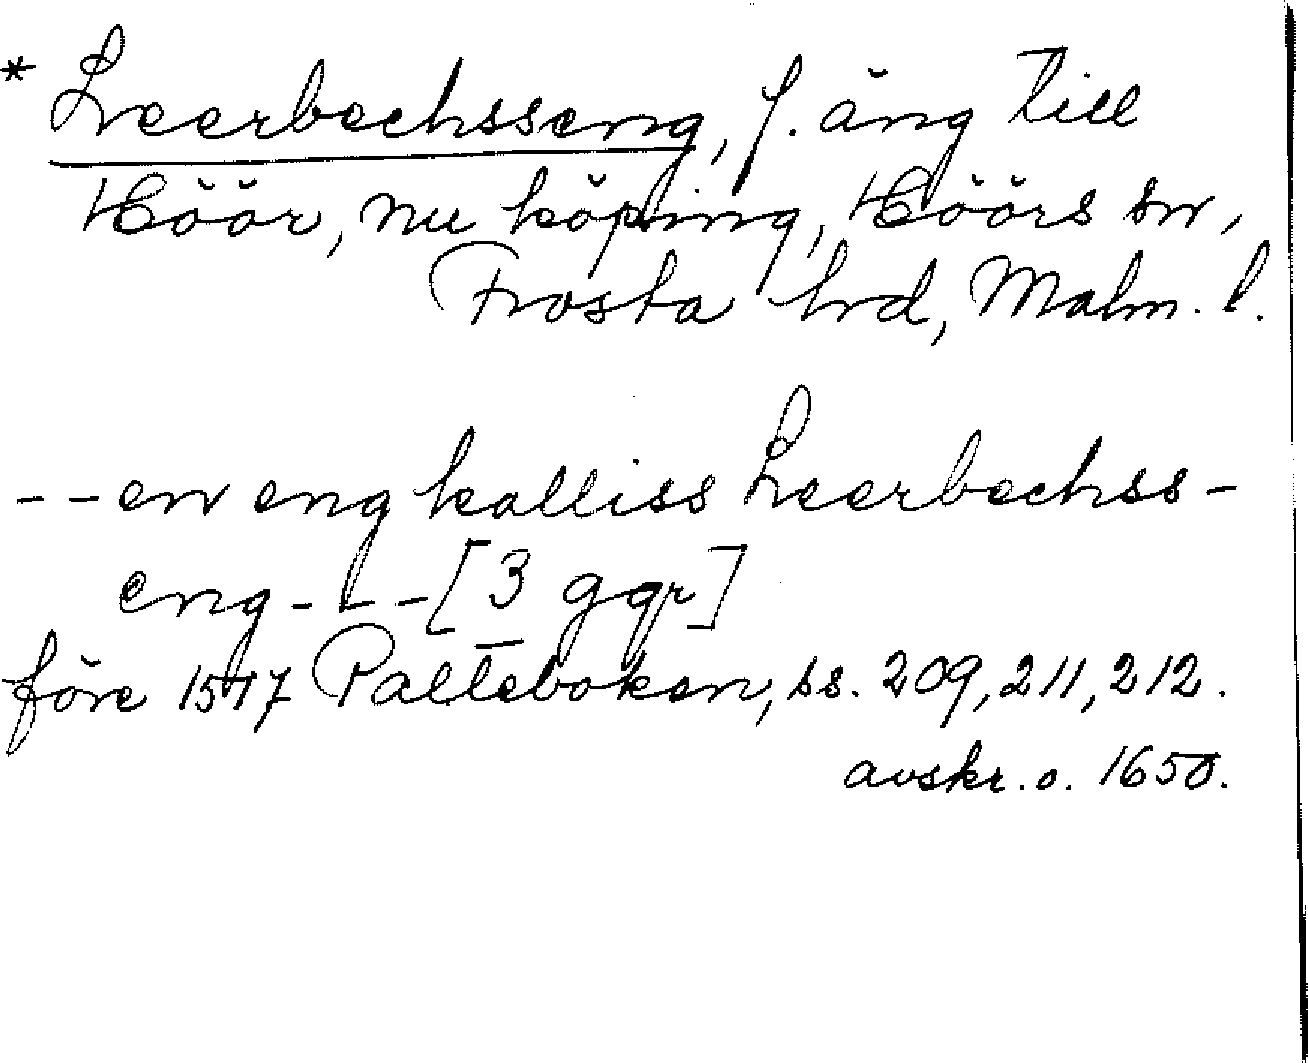 * Leerbechsseng, f. äng till
Höör, nu köping, Höörs sn,
Frosta hd, Malm. l.
- - en eng kalliss Leerbechss-
eng - - - [3 ggr]
före 1517 Palteboken, ss. 209, 211, 212.
avskr. o. 1650.